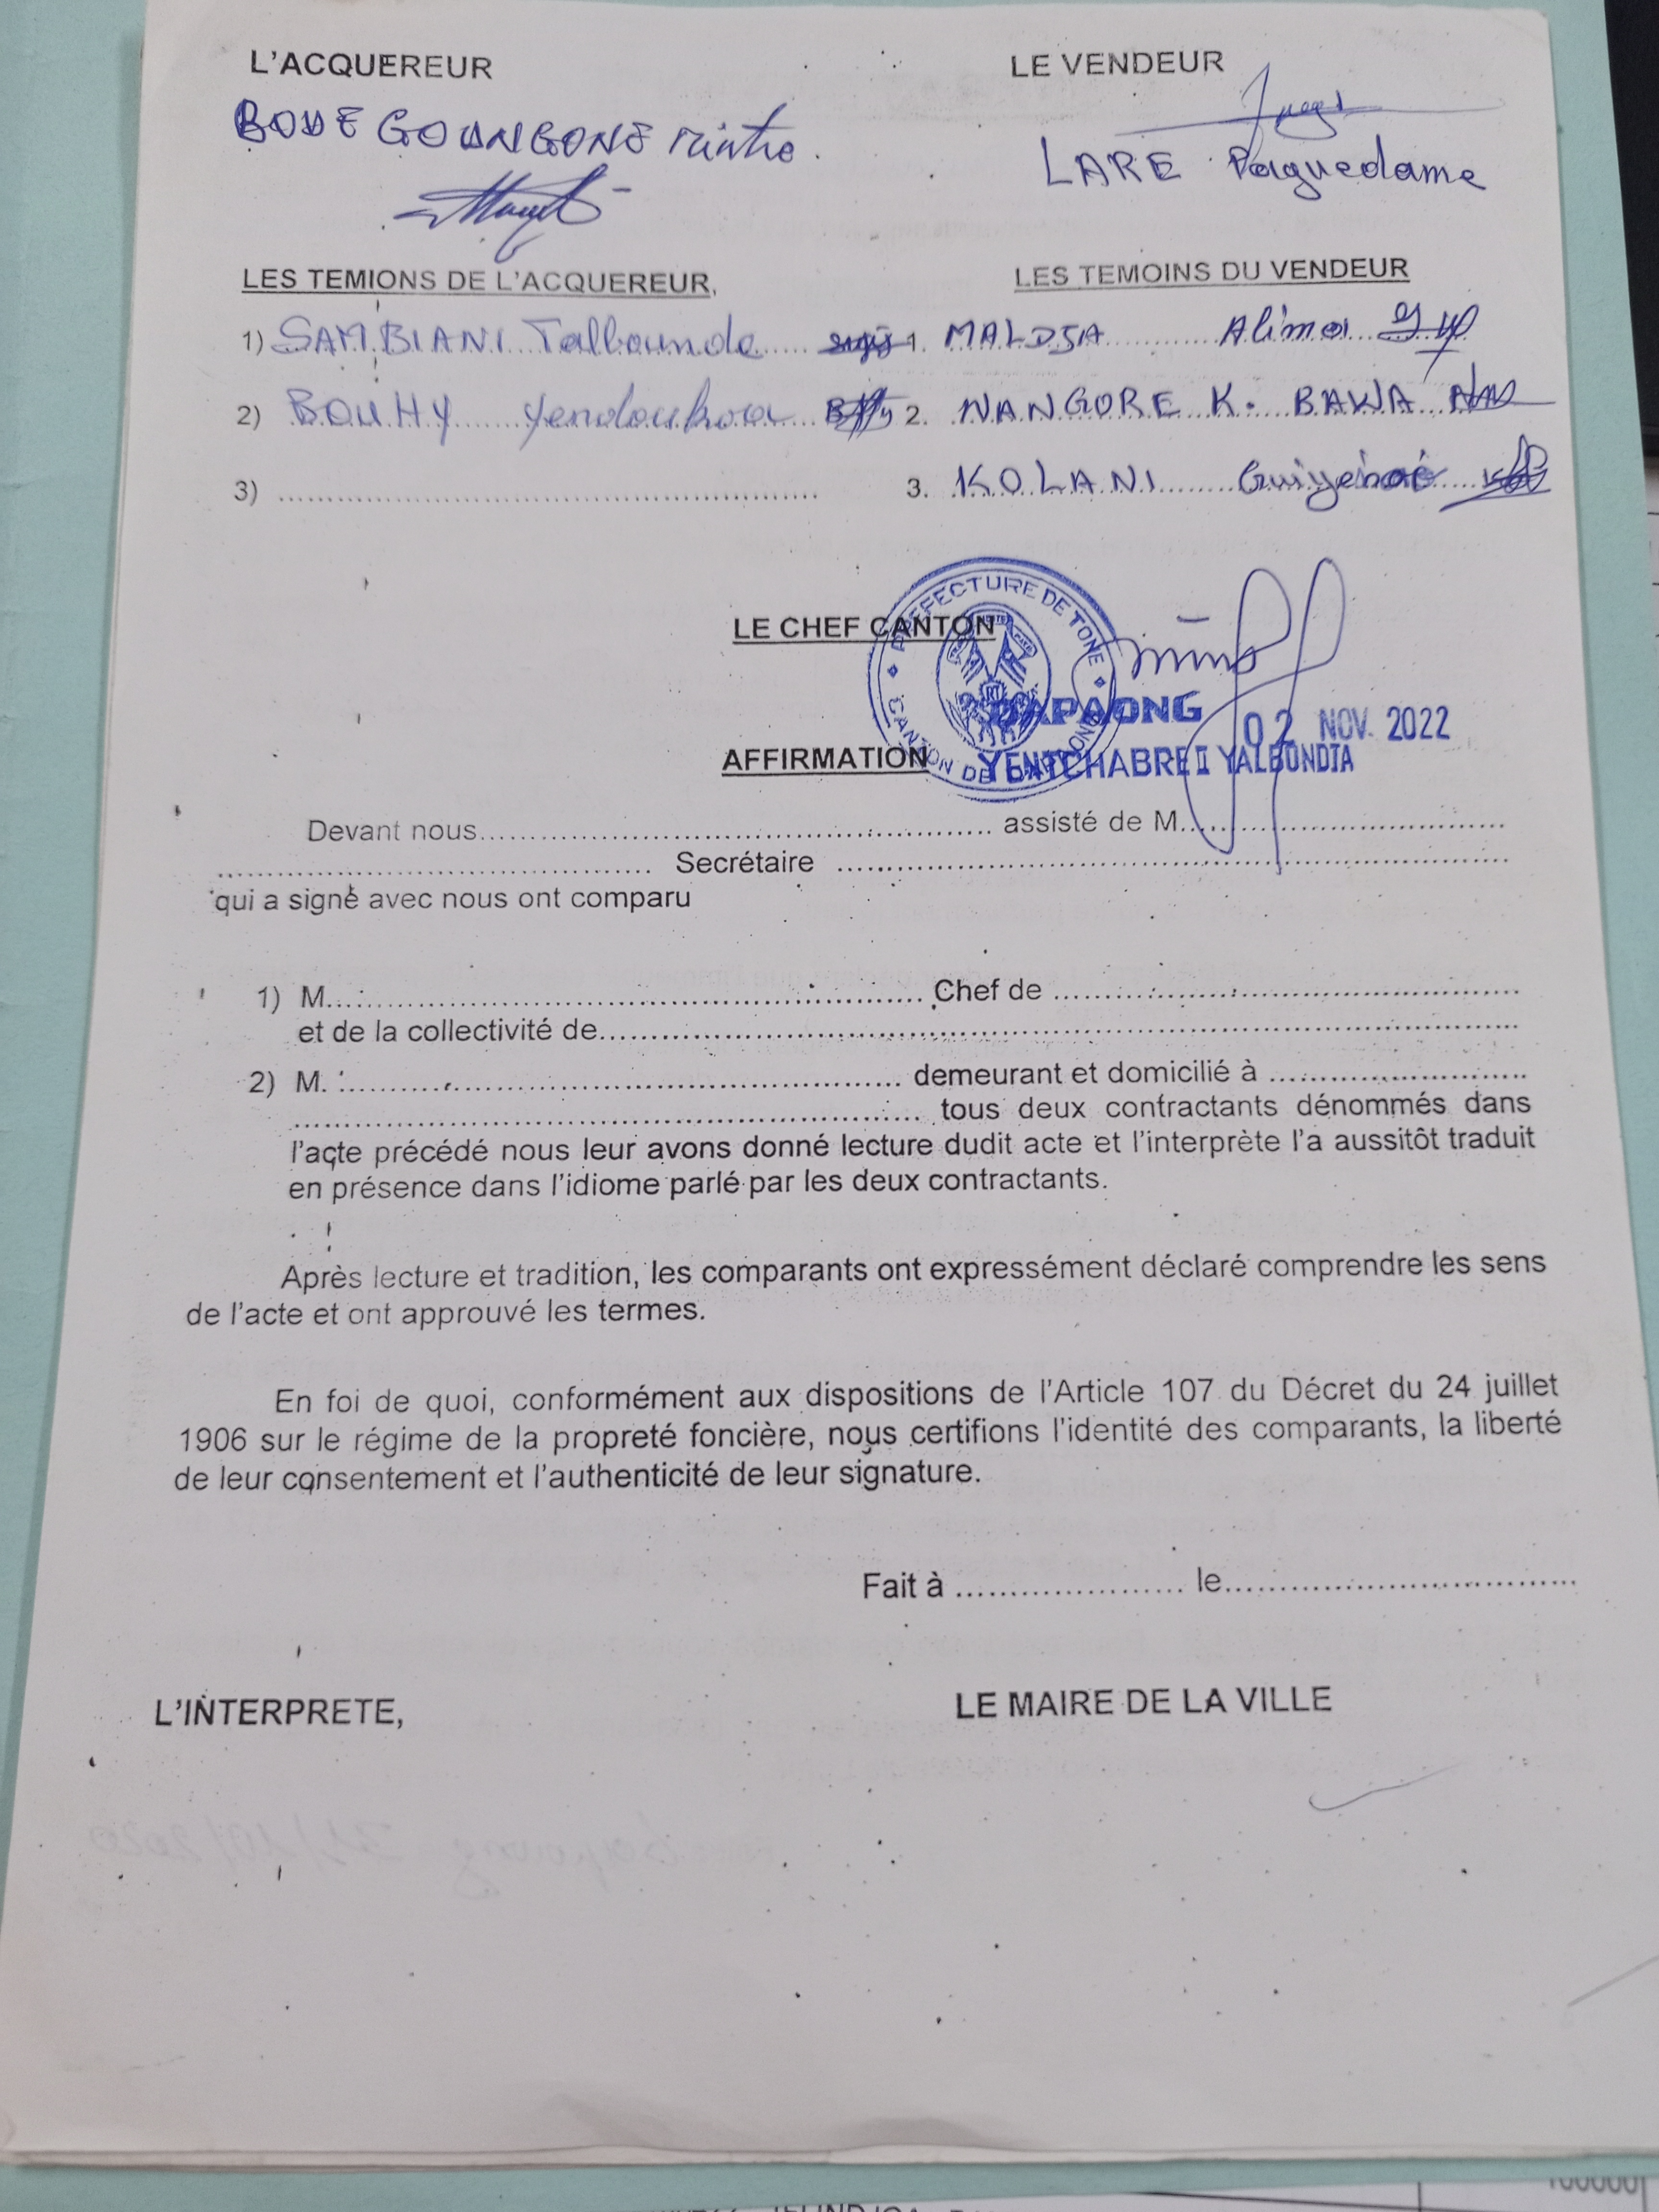 L'ACQUEREUR
LE VENDEUR
BODE GOUNGONE
LARE Paguedame
LES TEMIONS DE L'ACQUEREUR,
LES TEMOINS DU VENDEUR
1) SAMBIANI Talbounda
1. MALDJA Alima
2) BOUHY Yendoukoa
2. NANGORE K. BAWA
3) ........................
3. KOLANI
LE CHEF CANTON
PREFECTURE DE TONE
CANTON DE DAPAONG
RT
DAPAONG
02 NOV. 2022
YENTCHABRE II YALBONDIA
AFFIRMATION
Devant nous........................ assisté de M........................
........................ Secrétaire ........................
qui a signé avec nous ont comparu
1) M......................... Chef de ........................
et de la collectivité de........................
2) M. :........................ demeurant et domicilié à ........................
........................ tous deux contractants dénommés dans
l'acte précédé nous leur avons donné lecture dudit acte et l'interprète l'a aussitôt traduit
en présence dans l'idiome parlé par les deux contractants.
Après lecture et tradition, les comparants ont expressément déclaré comprendre les sens
de l'acte et ont approuvé les termes.
En foi de quoi, conformément aux dispositions de l'Article 107 du Décret du 24 juillet
1906 sur le régime de la propreté foncière, nous certifions l'identité des comparants, la liberté
de leur consentement et l'authenticité de leur signature.
Fait à ..................... le........................
L'INTERPRETE,
LE MAIRE DE LA VILLE